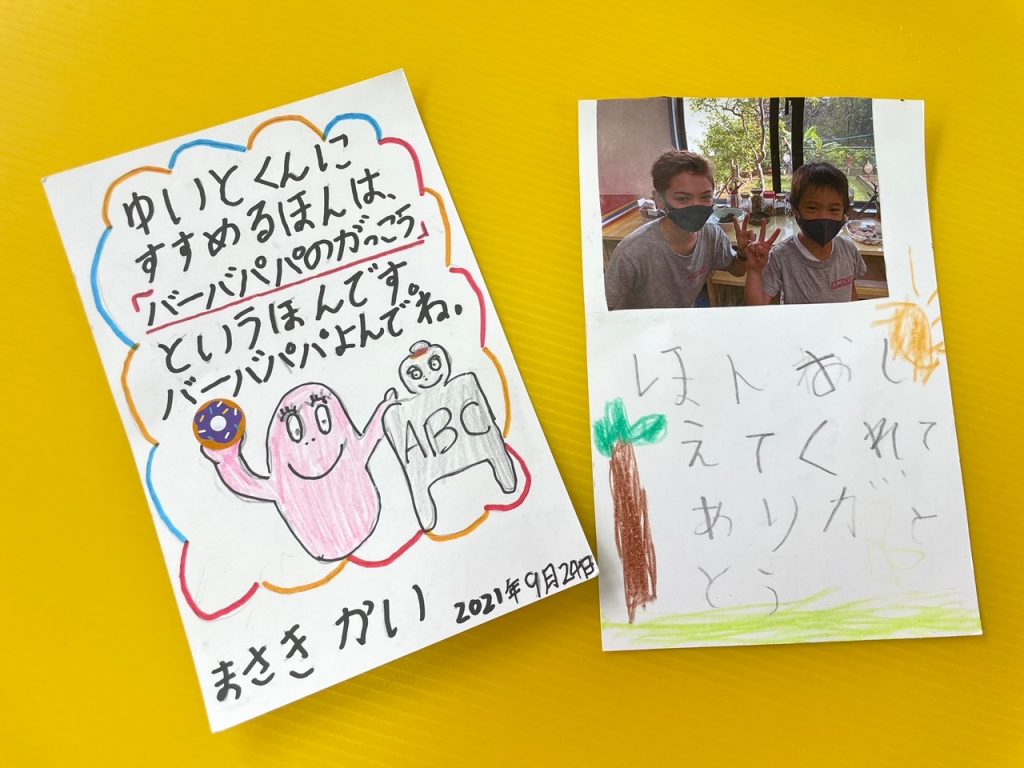 ゆいとくんに
すすめるほんは、
「バーバパパのがっこう」
というほんです。
バーバパパよんでね。
ABC
まさき かい
2021年9月24日
ほんおし
えてくれて
ありがと
とう